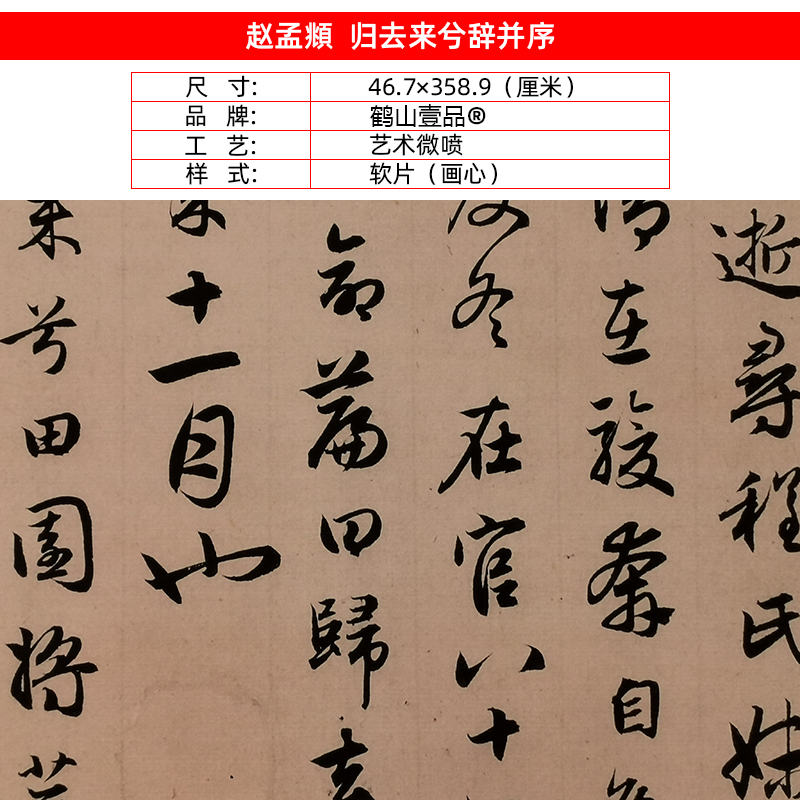 赵孟頫 归去来兮辞并序
尺 寸: 46.7×358.9（厘米）
品 牌: 鹤山壹品®
工 艺: 艺术微喷
样 式: 软片（画心）
逝尋程氏妹
情在駿奔自免
及冬在官八十
命篇曰歸去
未十一月也
来兮田園將芜